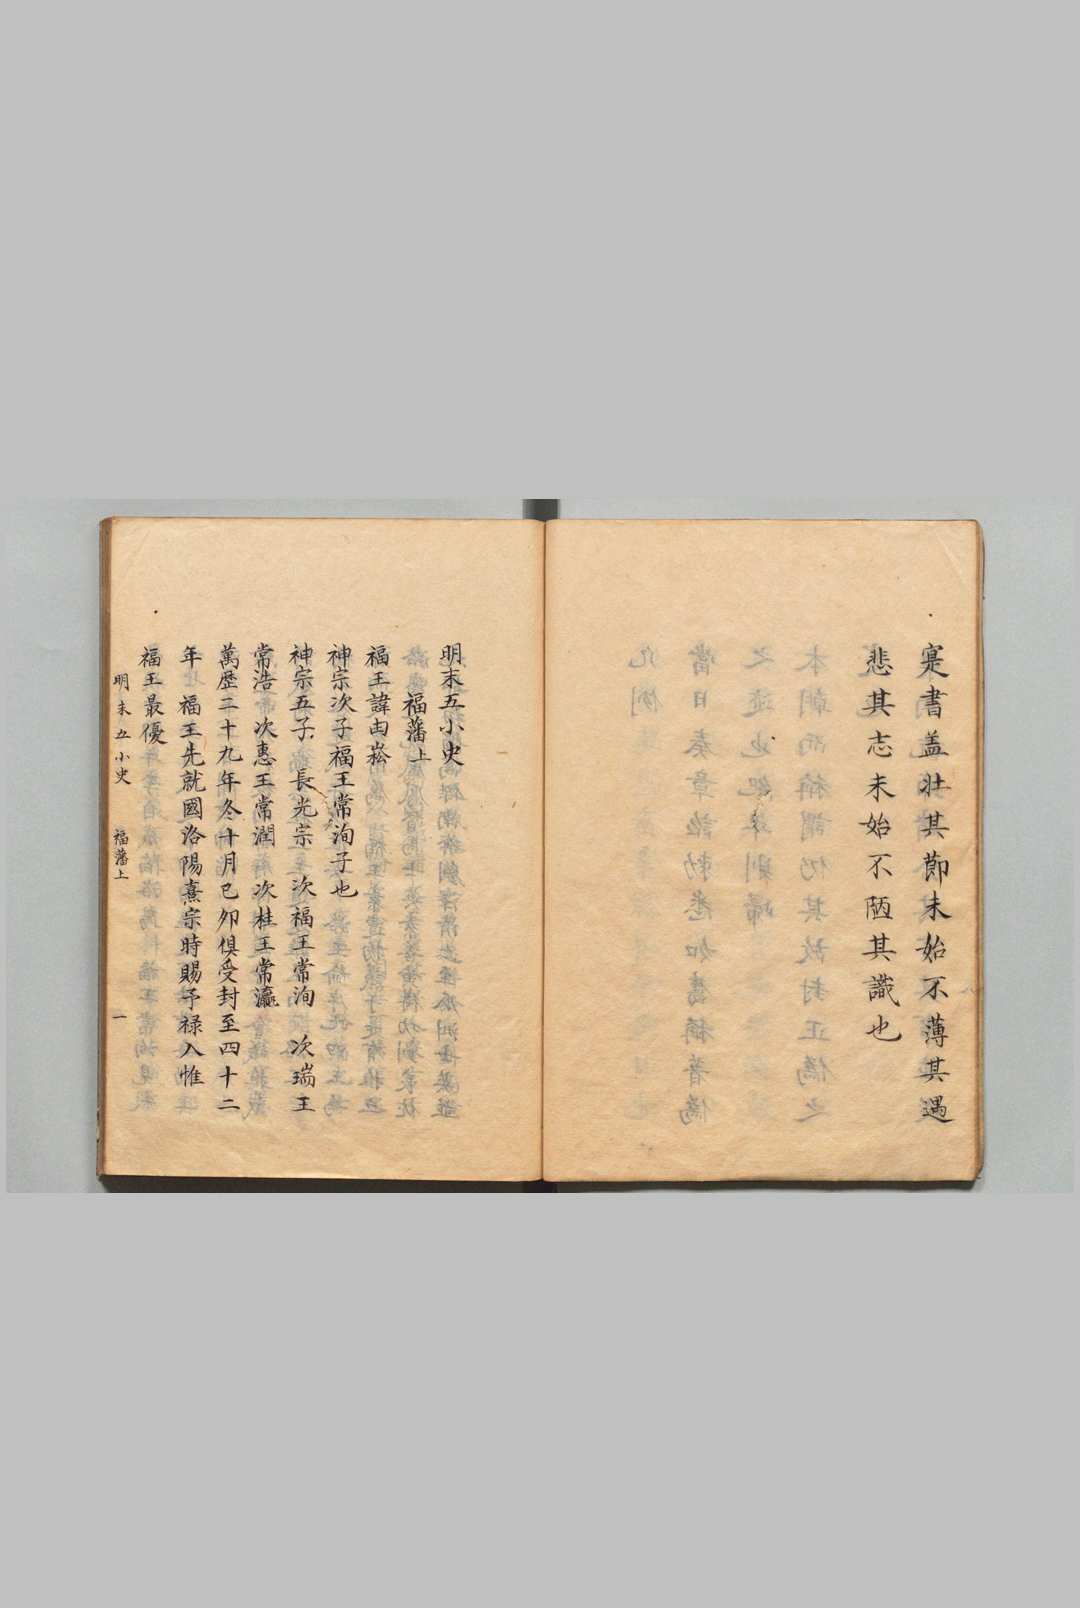 寔書盖壯其節未始不薄其遇
悲其志未始不陋其識也
明末五小史
福藩上
福王諱由崧
神宗次子福王常洵子也
神宗五子長光宗次福王常洵次瑞王
常浩次惠王常潤次桂王常瀛
萬歷二十九年冬十月己卯俱受封至四十二
年福王先就國洛陽熹宗時賜予祿入惟
福王最優
明末五小史 福藩上 一